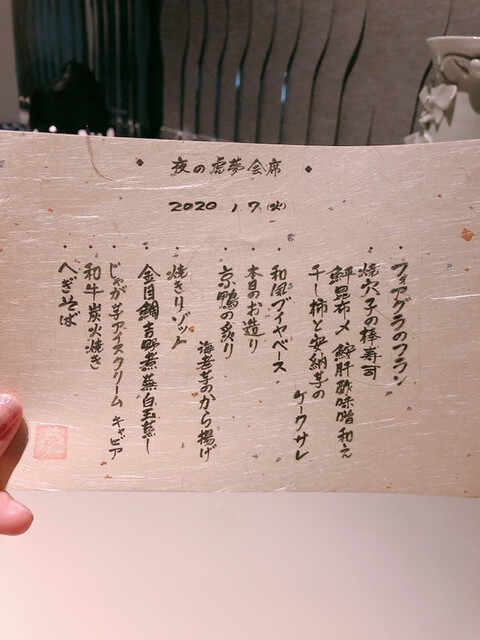 夜の虎夢会席
2020 1.7.(火)
・フォアグラのフラン
・焼穴子の棒寿司
鮃昆布〆 鮟肝酢味噌和え
干し柿と安納芋の
ケークサレ
・和風ブイヤベース
・本日のお造り
・京鴨の炙り
海老芋のから揚げ
・焼きリゾット
・金目鯛吉野煮蕪白玉蒸し
・じゃが芋アイスクリーム キャビア
・和牛炭火焼き
・へぎそば